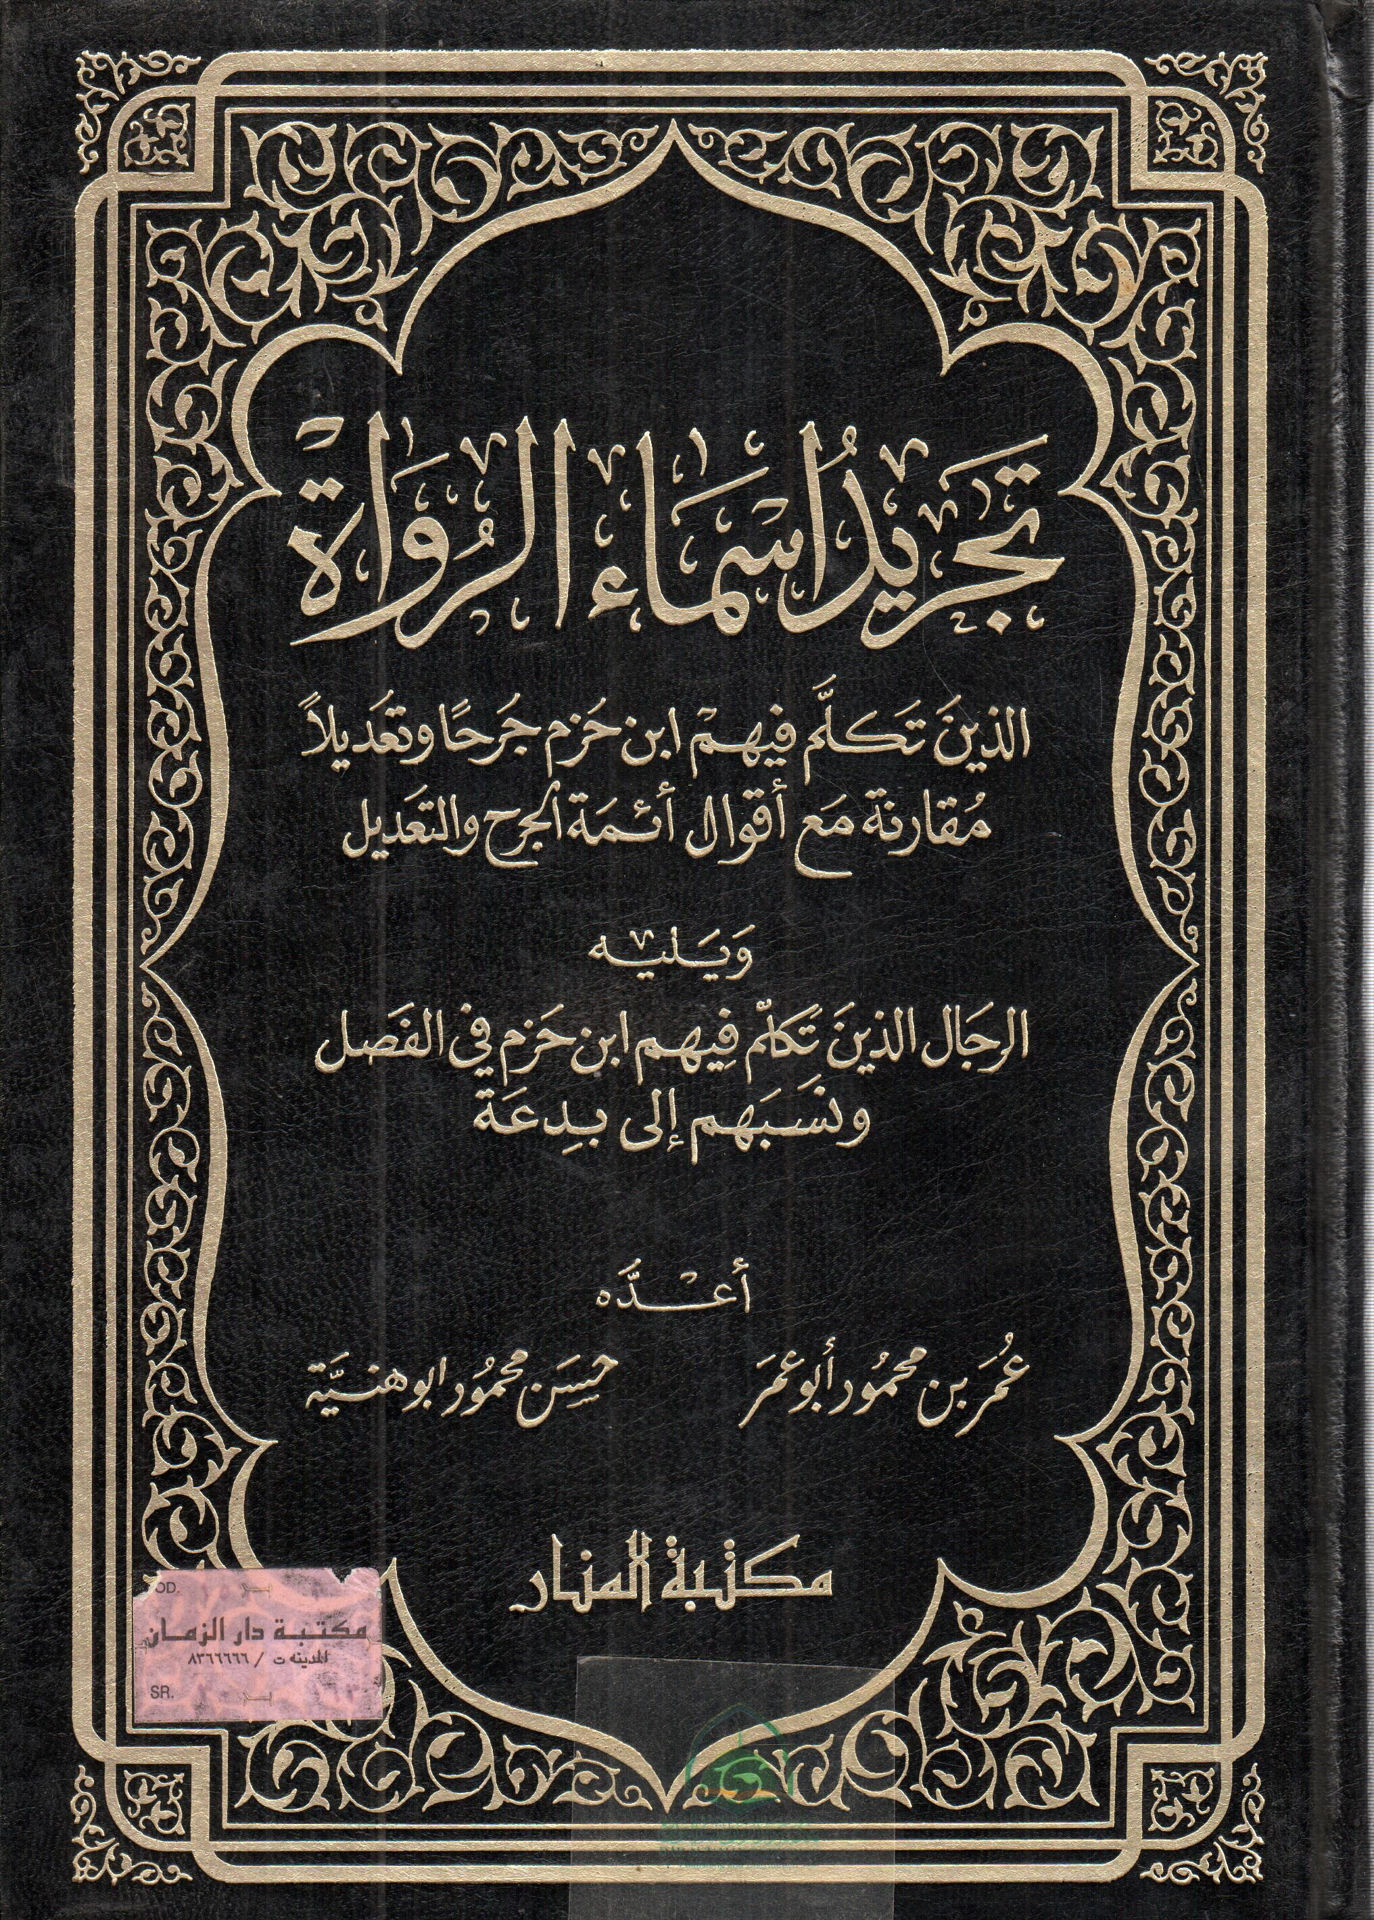 تجريدُ اسْمَاء الرُوَاةْ
الذينَ تَكلَّم فيهمْ ابن حَزم جَرحًا وتعْديلاً
مُقارنة مَع أقوال أئمة الجرح والتعَديل
وَيَليه
الرجَال الذينَ تَكلّم فِيهم ابن حَزم في الفَصل
ونسَبَهم إلى بِدعَة
أعْدَّه
عُمَر بن محمُود أبو عمَر
حسَن محمُود ابو هنيَّة
مكتبة المنار
OD.
مكتبة دار الزمان
المدينه ت / ٨٣٦٦٦٦٦
SR.